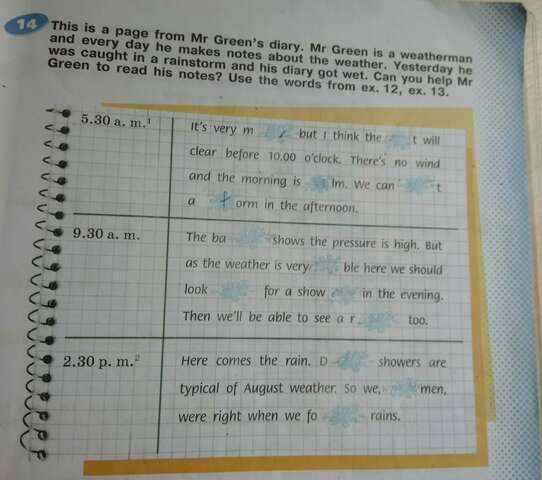 14 This is a page from Mr Green's diary. Mr Green is a weatherman
and every day he makes notes about the weather. Yesterday he
was caught in a rainstorm and his diary got wet. Can you help Mr
Green to read his notes? Use the words from ex. 12, ex. 13.
5.30 a. m.¹
It's very m but I think the t will
clear before 10.00 o'clock. There's no wind
and the morning is lm. We can t
a orm in the afternoon.
9.30 a. m.
The ba shows the pressure is high. But
as the weather is very ble here we should
look for a show in the evening.
Then we'll be able to see a r too.
2.30 p. m.²
Here comes the rain. D showers are
typical of August weather. So we, men,
were right when we fo rains.